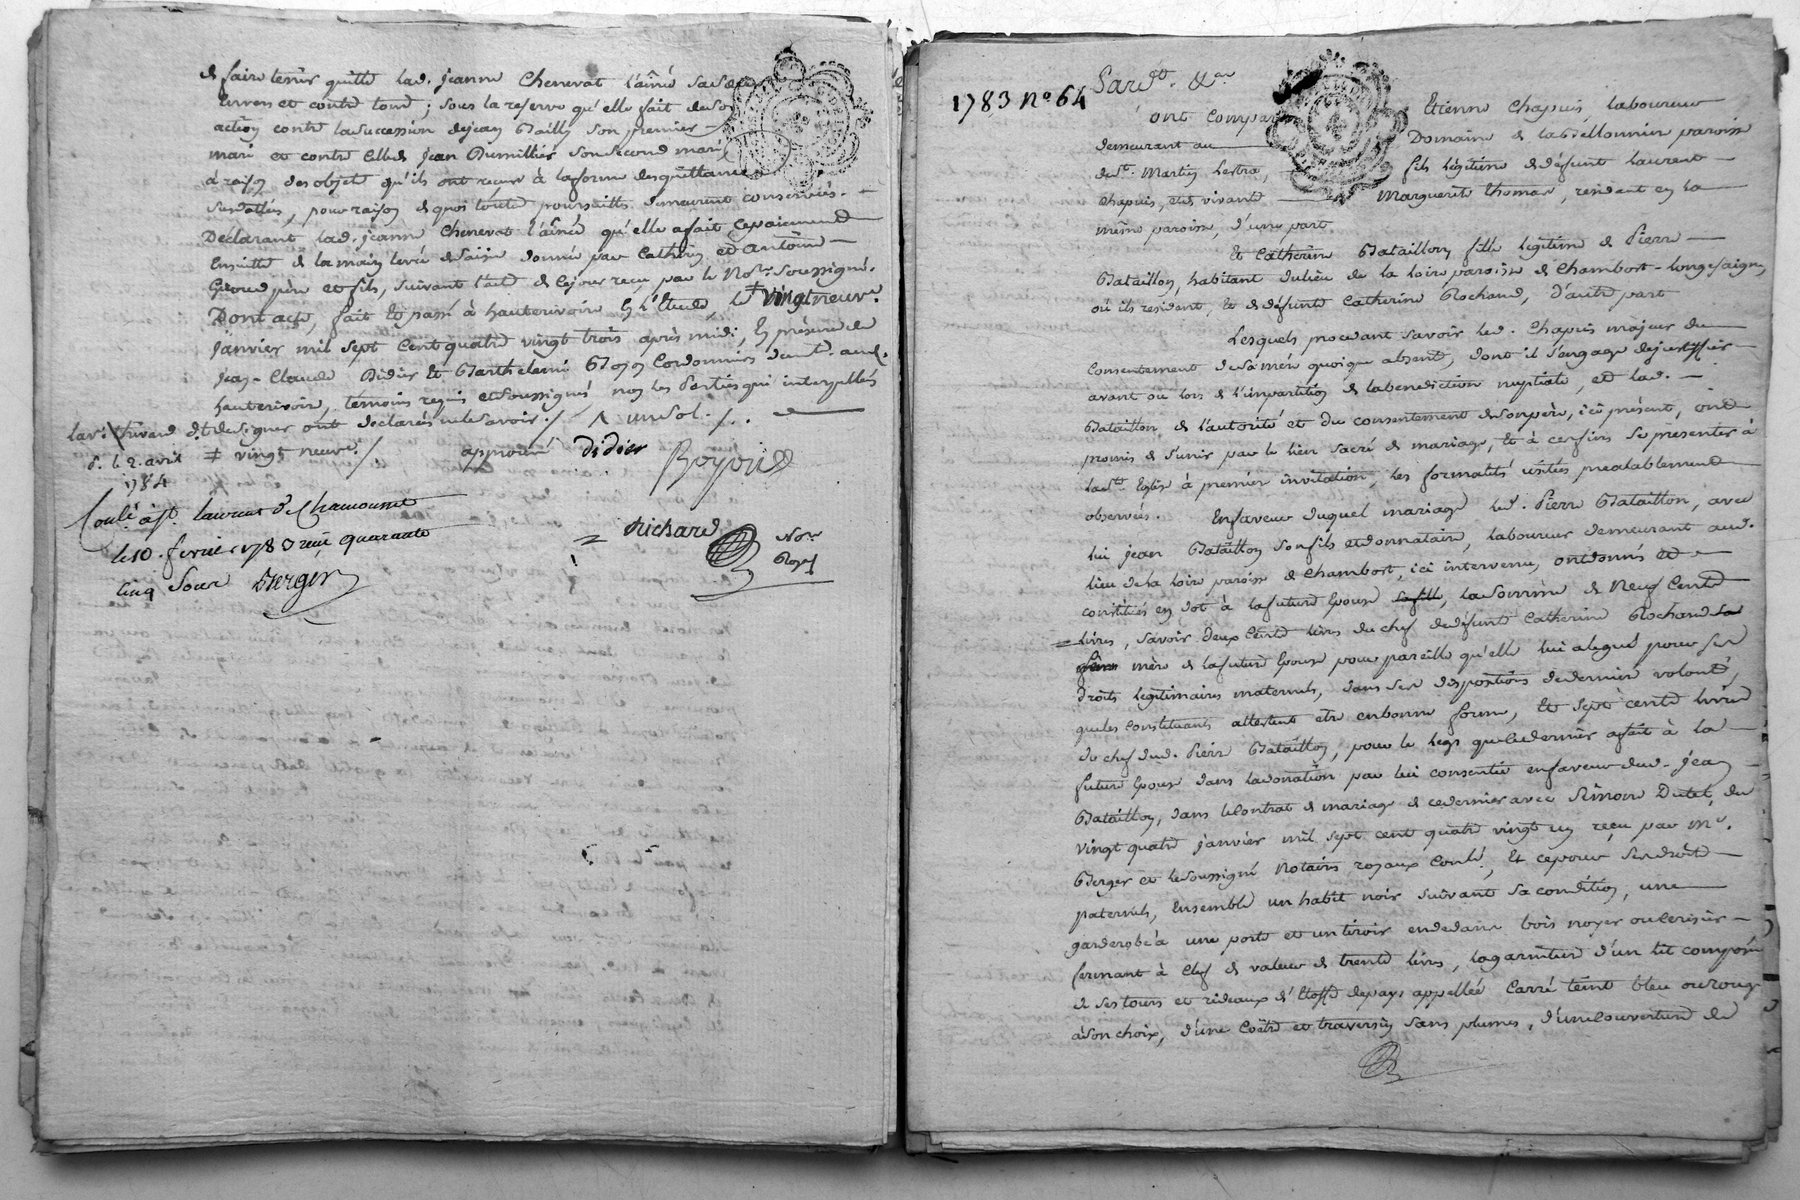 de faire tenir quitte lad. jeanne Chenevat l'aînée
envers et contre tous; sous la reserve qu'elle fait de son
action contre la succession de jean Bailly son premier
mari et contre celle de jean Dumillier son second mari
à raison des objets qu'ils ont reçus à la forme des quittances
pour raison de quoi toutes poursuittes demeurent conservées. —
Déclarant lad. jeanne Chenevat l'aînée qu'elle a fait ce paiement
ensuitte de la main levée de saisie donnée par Catherin et Antoine —
père et fils, suivant l'acte de ce jour reçu par le No.re soussigné.
Dont acte, fait et passé à hauterivoire en l'Etude, le ‡ vingtneuve.
janvier mil sept cent quatre vingt trois après midi, en présence de
jean-Claude Didier et Barthelemi Boyon Cordonniers dem.t aud.
hauterivoire, témoins requis et soussignés non les Parties qui interpellés
de signer ont déclaré ne le savoir ./ un sol ./. —
‡ vingt neuve ./ approuvé didier Boyon
d. l. 2. avril
1784
Conlé à St. laurent de Chamousset
le 10. fevrier 1783 reçu quarante
cinq sous Berger
Richard No.re
Royal
1783 N° 64
Pard.t &.a
ont comparu Etienne Chapuis, laboureur
demeurant au Domaine de la Bellonnière paroisse
de St. Martin Lestra, fils légitime de défunt laurent —
Chapuis, et de vivante Marguerite thomas, residant en la —
même paroisse, d'une part.
Et Catherine Bataillon fille legitime de Pierre —
Bataillon, habitant du lieu de la loire paroisse de Chambost-longessaigne,
où ils resident, et de défunte Catherine Rochand, d'autre part
Lesquels procedant savoir led. Chapuis majeur du
consentement de sa mère quoique absente, dont il s'engage de justifier —
avant ou lors de l'impartition de la benediction nuptiale, et lad. —
Bataillon de l'autorité et du consentement de son père, ici présent, ont
promis de s'unir par le lien sacré de mariage, et à ces fins se présenter à
la ste. Eglise à première invitation, les formalités usitées prealablement
observées. En faveur duquel mariage led. Pierre Bataillon, avec
lui jean Bataillon son fils et donnataire, laboureur demeurant aud.
lieu de la loire paroisse de Chambost, ici intervenu, ont donnés et —
constitués en dot à la future Epouse la fille, la somme de Neuf Cents
livres, savoir deux cents livres du chef de défunte Catherine Rochand sa
mère de la future Epouse pour pareille qu'elle lui a legué pour ses
droits legitimaires maternels, dans ses dispositions de dernière volonté,
que les constituants attestent être en bonne forme, et sept cents livres
du chef dud. Pierre Bataillon, pour le legs que ce dernier a fait à la —
future Epouse dans la donation par lui consentie en faveur dud. jean —
Bataillon, dans le contrat de mariage de ce dernier avec Simone Dutel, du
vingt quatre janvier mil sept cent quatre vingt un reçu par M.e
Berger et le soussigné Notaires royaux Conlé, Et ce pour ses droits —
paternels, Ensemble un habit noir suivant sa condition, une —
garderobe à une porte et un tiroir en dedans bois noyer ou cerisier —
fermant à clef de valeur de trente livres, la garniture d'un lit composée
de ses tours et rideaux d'Etoffe de pays appellée Carré teint bleu ou rouge
à son choix, d'une coëtre et traversin sans plumes, d'une couverture de